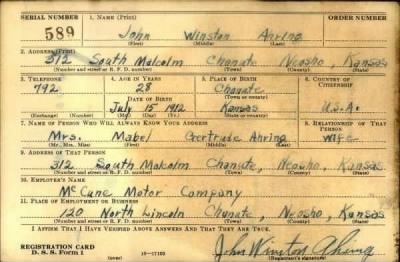 SERIAL NUMBER 1. NAME (Print) ORDER NUMBER
589 John Winston Ahring
(First) (Middle) (Last)
2. ADDRESS (Print)
312 South Malcolm Chanute Neosho, Kansas
(Number and street or R. F. D. number) (Town) (County) (State)
3. TELEPHONE 4. AGE IN YEARS 5. PLACE OF BIRTH 6. COUNTRY OF CITIZENSHIP
792 28 Chanute
DATE OF BIRTH (Town or county)
July 15 1912 Kansas U.S.A.
(Exchange) (Number) (Mo.) (Day) (Yr.) (State or country)
7. NAME OF PERSON WHO WILL ALWAYS KNOW YOUR ADDRESS 8. RELATIONSHIP OF THAT PERSON
Mrs. Mabel Gertrude Ahring wife
(Mr., Mrs., Miss) (First) (Middle) (Last)
9. ADDRESS OF THAT PERSON
312 South Malcolm Chanute, Neosho, Kansas
(Number and street or R. F. D. number) (Town) (County) (State)
10. EMPLOYER'S NAME
McCune Motor Company
11. PLACE OF EMPLOYMENT OR BUSINESS
120 North Lincoln Chanute, Neosho, Kansas
(Number and street or R. F. D. number) (Town) (County) (State)
I AFFIRM THAT I HAVE VERIFIED ABOVE ANSWERS AND THAT THEY ARE TRUE.
REGISTRATION CARD John Winston Ahring
D. S. S. Form 1 (over) 16—17105 (Registrant's signature)